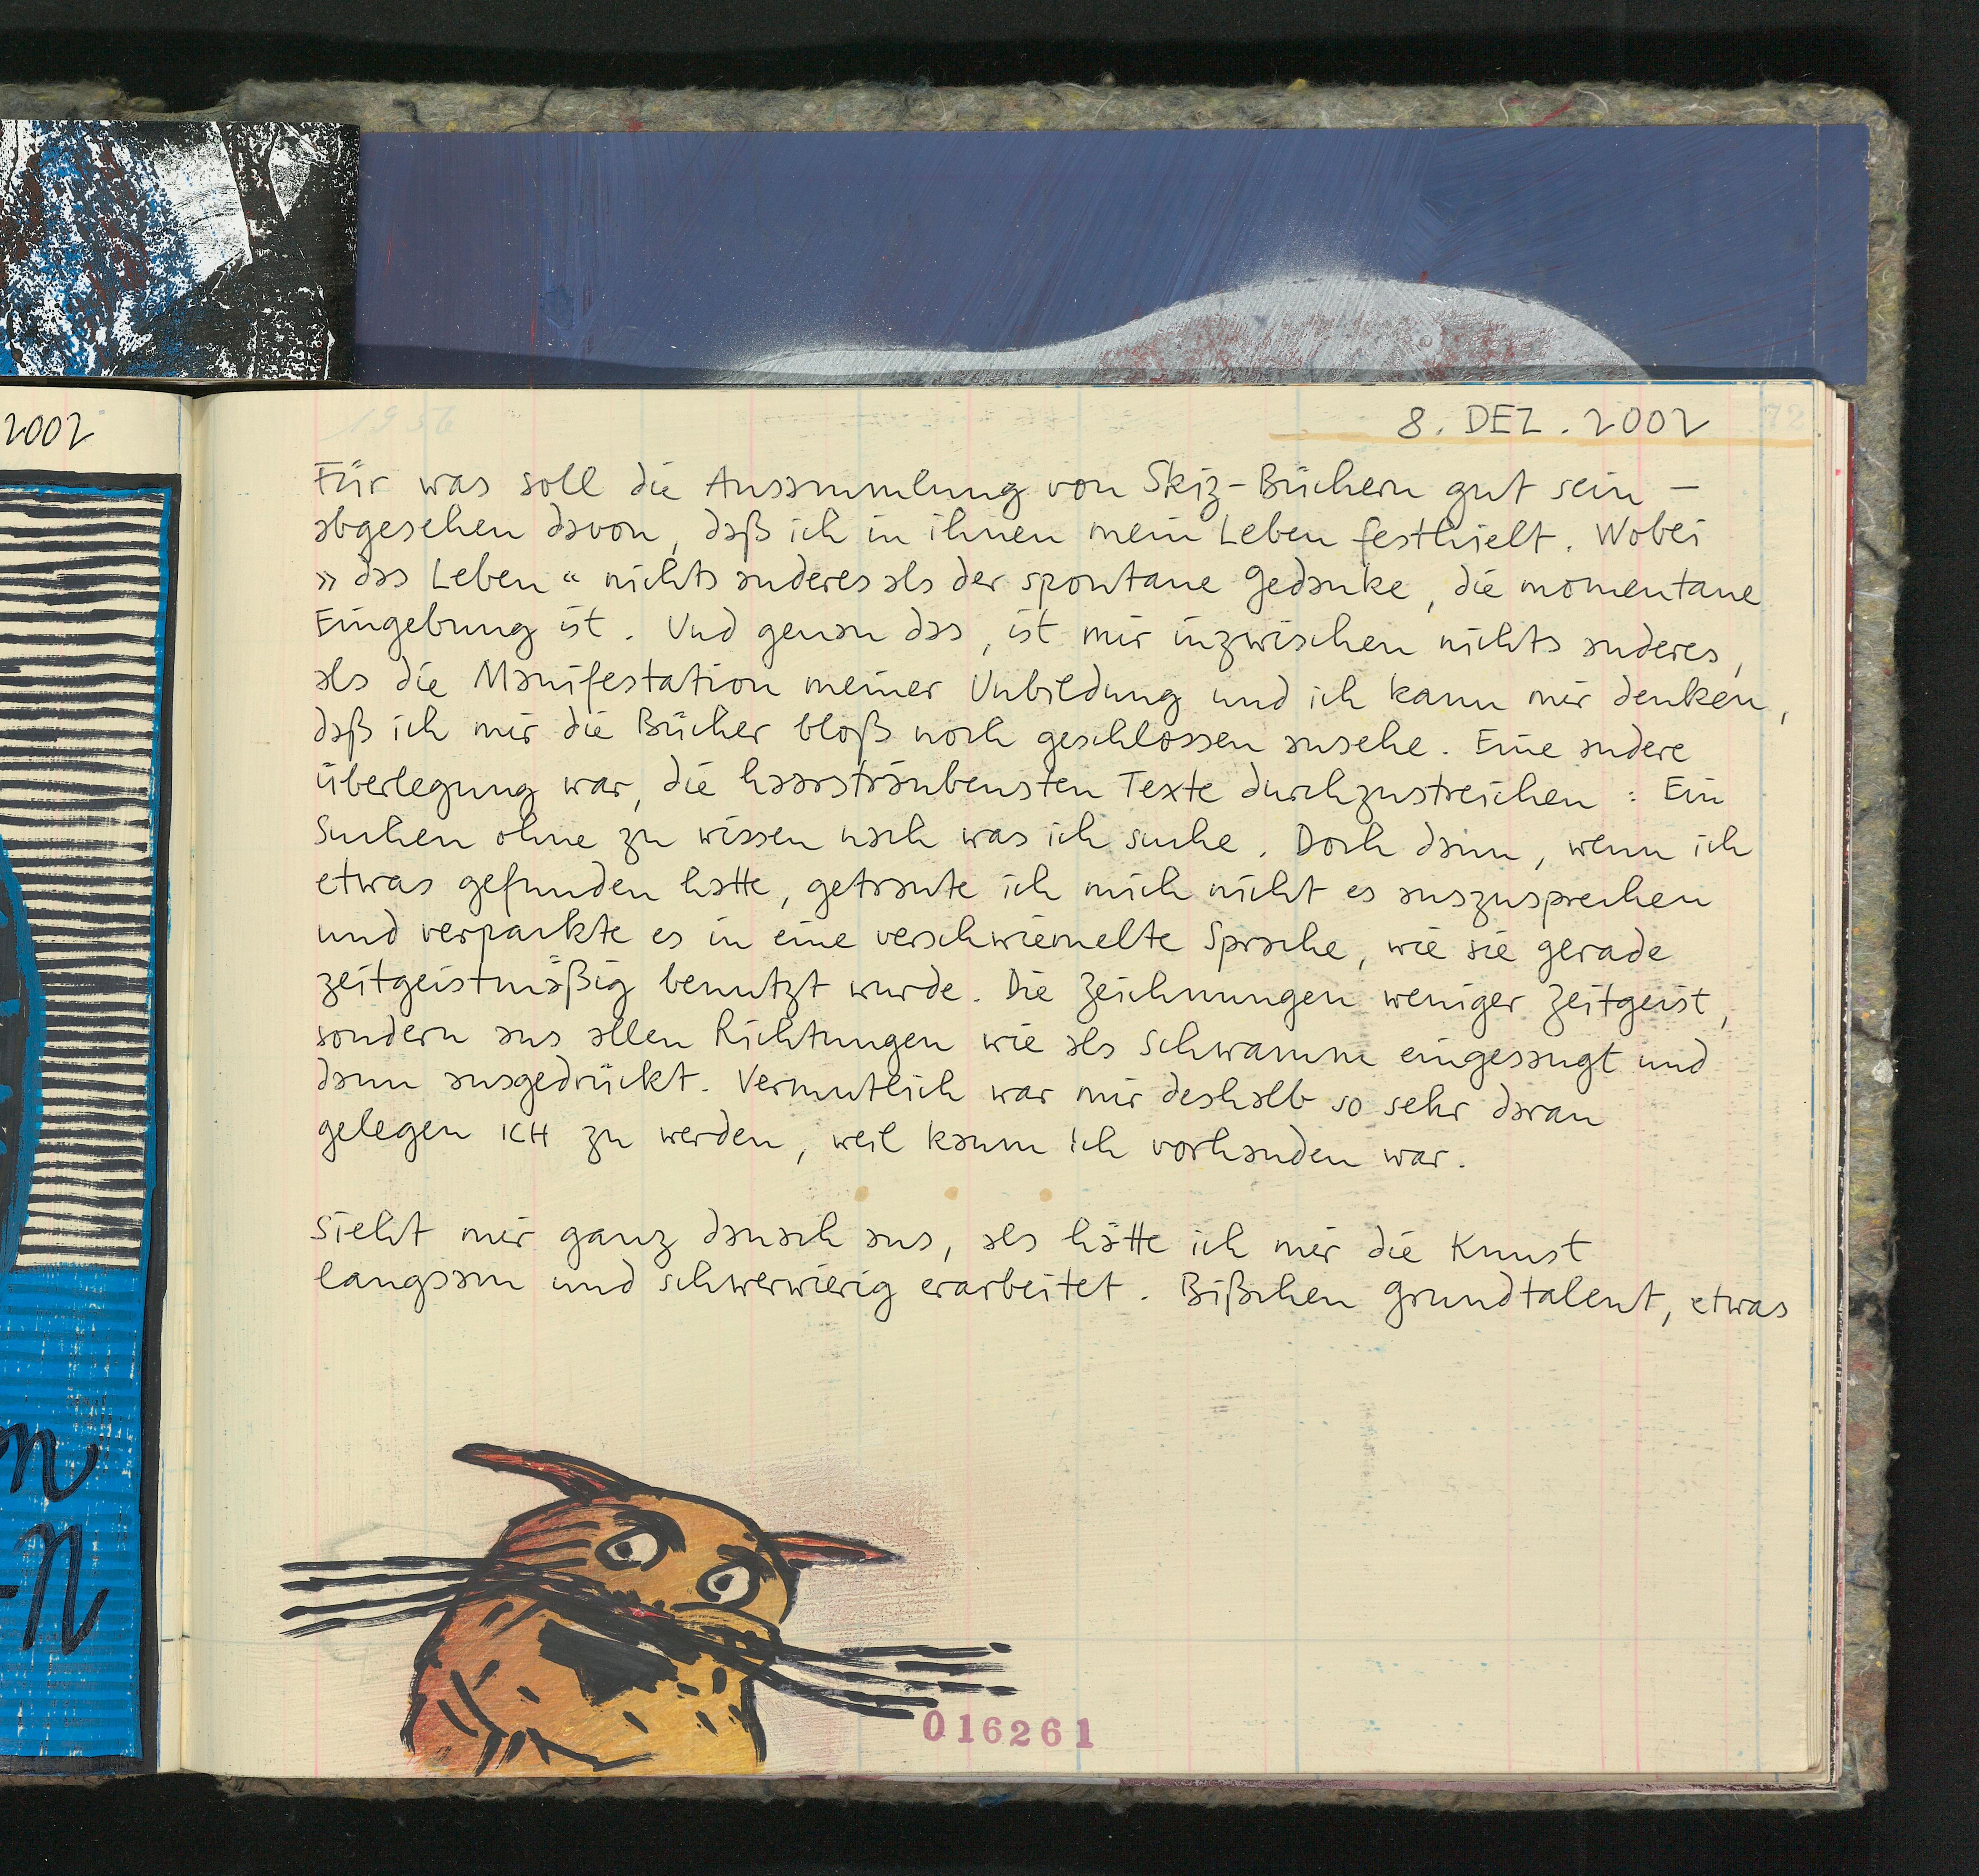 2002
1956
8. DEZ. 2002
72
Für was soll die Ansammlung von Skiz-Büchern gut sein –
abgesehen davon, daß ich in ihnen mein Leben festhielt. Wobei
»das Leben“ nichts anderes als der spontane Gedanke, die momentane
Eingebung ist. Und genau das, ist mir inzwischen nichts anderes,
als die Manifestation meiner Unbildung und ich kann mir denken,
daß ich mir die Bücher bloß noch geschlossen ansehe. Eine andere
überlegung war, die haarsträubensten Texte durchzustreichen: Ein
Suchen ohne zu wissen nach was ich suche. Doch dann, wenn ich
etwas gefunden hatte, getraute ich mich nicht es auszusprechen
und verpackte es in eine verschwiemelte Sprache, wie sie gerade
zeitgeistmäßig benutzt wurde. Die Zeichnungen weniger Zeitgeist,
sondern aus allen Richtungen wie als Schwamm eingesaugt und
dann ausgedrückt. Vermutlich war mir deshalb so sehr daran
gelegen ICH zu werden, weil kaum Ich vorhanden war.
Sieht mir ganz danach aus, als hätte ich mir die Kunst
langsam und schwerwierig erarbeitet. Bißchen Grundtalent, etwas
016261